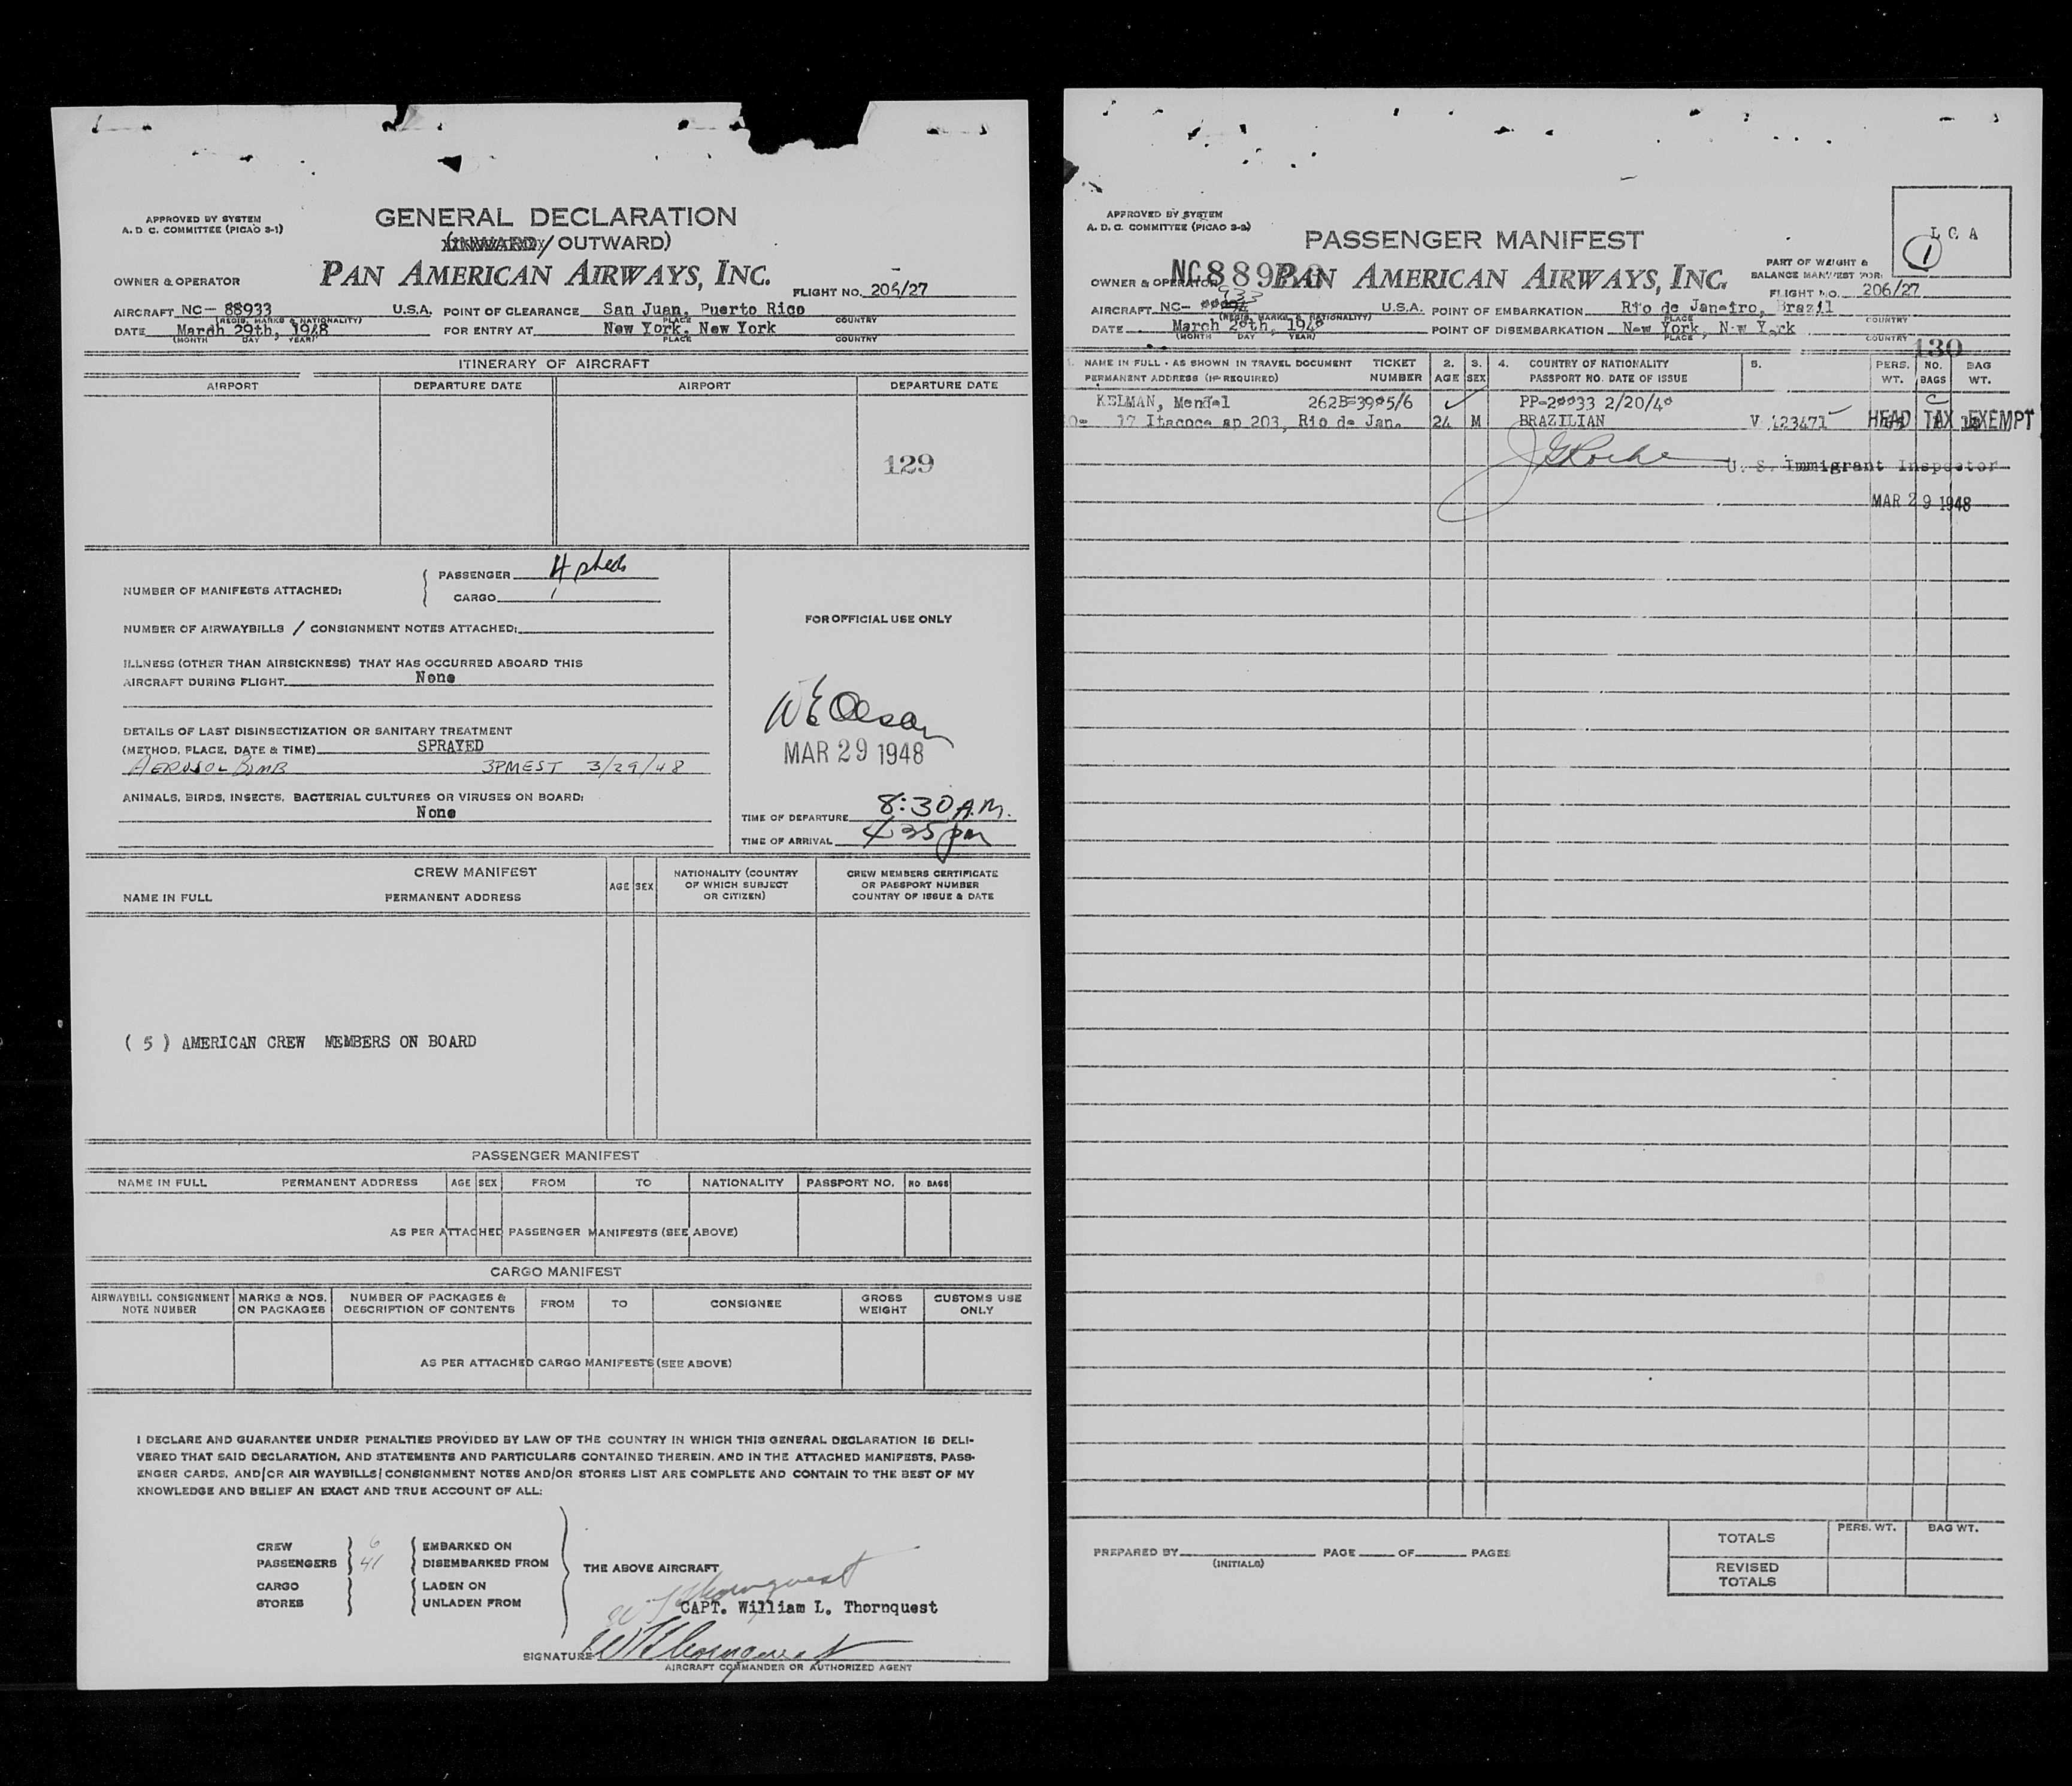 APPROVED BY SYSTEM
A. D. C. COMMITTEE (PICAO 3-1)
GENERAL DECLARATION
(INWARD / OUTWARD)
PAN AMERICAN AIRWAYS, INC.
OWNER & OPERATOR
FLIGHT NO. 206/27
AIRCRAFT NC- 88933 U.S.A. POINT OF CLEARANCE San Juan, Puerto Rico
(REGIS. MARKS & NATIONALITY) PLACE COUNTRY
DATE March 29th, 1948 FOR ENTRY AT New York, New York
(MONTH DAY YEAR) PLACE COUNTRY
ITINERARY OF AIRCRAFT
AIRPORT DEPARTURE DATE AIRPORT DEPARTURE DATE
129
NUMBER OF MANIFESTS ATTACHED:
PASSENGER 4
CARGO
NUMBER OF AIRWAYBILLS / CONSIGNMENT NOTES ATTACHED:
ILLNESS (OTHER THAN AIRSICKNESS) THAT HAS OCCURRED ABOARD THIS
AIRCRAFT DURING FLIGHT None
DETAILS OF LAST DISINSECTIZATION OR SANITARY TREATMENT
(METHOD, PLACE, DATE & TIME) SPRAYED
AEROSOL BOMB 3PMEST 3/29/48
ANIMALS, BIRDS, INSECTS, BACTERIAL CULTURES OR VIRUSES ON BOARD:
None
FOR OFFICIAL USE ONLY
W E Olsen
MAR 29 1948
TIME OF DEPARTURE 8:30 A.M.
TIME OF ARRIVAL 4 35 pm
CREW MANIFEST
NAME IN FULL PERMANENT ADDRESS
AGE SEX
NATIONALITY (COUNTRY OF WHICH SUBJECT OR CITIZEN)
CREW MEMBERS CERTIFICATE OR PASSPORT NUMBER COUNTRY OF ISSUE & DATE
( 5 ) AMERICAN CREW MEMBERS ON BOARD
PASSENGER MANIFEST
NAME IN FULL PERMANENT ADDRESS AGE SEX FROM TO NATIONALITY PASSPORT NO. NO. BAGS
AS PER ATTACHED PASSENGER MANIFESTS (SEE ABOVE)
CARGO MANIFEST
AIRWAYBILL CONSIGNMENT NOTE NUMBER
MARKS & NOS. ON PACKAGES
NUMBER OF PACKAGES & DESCRIPTION OF CONTENTS
FROM TO CONSIGNEE
GROSS WEIGHT
CUSTOMS USE ONLY
AS PER ATTACHED CARGO MANIFESTS (SEE ABOVE)
I DECLARE AND GUARANTEE UNDER PENALTIES PROVIDED BY LAW OF THE COUNTRY IN WHICH THIS GENERAL DECLARATION IS DELI-
VERED THAT SAID DECLARATION, AND STATEMENTS AND PARTICULARS CONTAINED THEREIN, AND IN THE ATTACHED MANIFESTS, PASS-
ENGER CARDS, AND/OR AIR WAYBILLS/CONSIGNMENT NOTES AND/OR STORES LIST ARE COMPLETE AND CONTAIN TO THE BEST OF MY
KNOWLEDGE AND BELIEF AN EXACT AND TRUE ACCOUNT OF ALL:
CREW 6 EMBARKED ON
PASSENGERS 41 DISEMBARKED FROM
CARGO LADEN ON
STORES UNLADEN FROM
THE ABOVE AIRCRAFT
CAPT. William L. Thornquest
SIGNATURE W L Thornquest
AIRCRAFT COMMANDER OR AUTHORIZED AGENT
APPROVED BY SYSTEM
A. D. C. COMMITTEE (PICAO 3-2)
PASSENGER MANIFEST
L C A
1
PART OF WEIGHT &
BALANCE MANIFEST FOR:
OWNER & OPERATOR PAN AMERICAN AIRWAYS, INC.
FLIGHT NO. 206/27
AIRCRAFT NC- 933 U.S.A. POINT OF EMBARKATION Rio de Janeiro, Brazil
(REGIS. MARKS & NATIONALITY) PLACE COUNTRY
DATE March 29th, 1948 POINT OF DISEMBARKATION New York, New York
(MONTH DAY YEAR) PLACE COUNTRY
130
1. NAME IN FULL - AS SHOWN IN TRAVEL DOCUMENT TICKET 2. 3. 4. COUNTRY OF NATIONALITY 5. PERS. NO. BAG
PERMANENT ADDRESS (IF REQUIRED) NUMBER AGE SEX PASSPORT NO. DATE OF ISSUE WT. BAGS WT.
KELMAN, Mendel
17 Itacoca ap 203, Rio de Jan. 24 M BRAZILIAN V 123471 HEAD TAX EXEMPT
U. S. Immigrant Inspector
MAR 29 1948
PREPARED BY PAGE OF PAGES
(INITIALS)
PERS. WT. BAG WT.
TOTALS
REVISED TOTALS